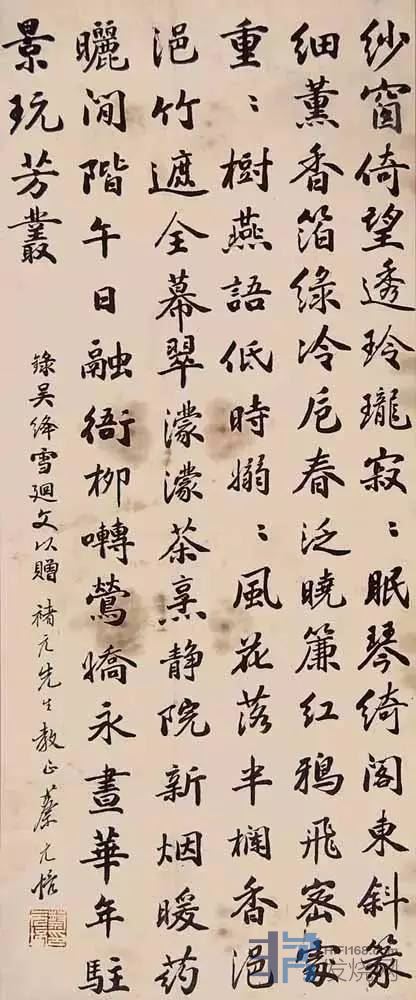 紗窗倚望透玲瓏寂〻眠琴綺閣東斜篆
細薰香箔綠冷卮春泛曉簾紅鴉飛密處
重〻樹燕語低時嫋〻風花落半欄香浥
浥竹遮全幕翠濛濛茶烹静院新烟暖药
曬閒階午日融衙柳囀鶯嬌永晝華年駐
景玩芳叢
錄吳絳雪廻文以贈 褚元先生教正 蔡元培
HIFI168.com
发烧网